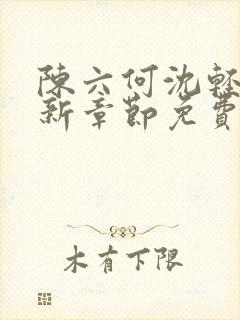 陳六何沈輕
新章節免費
木有下限